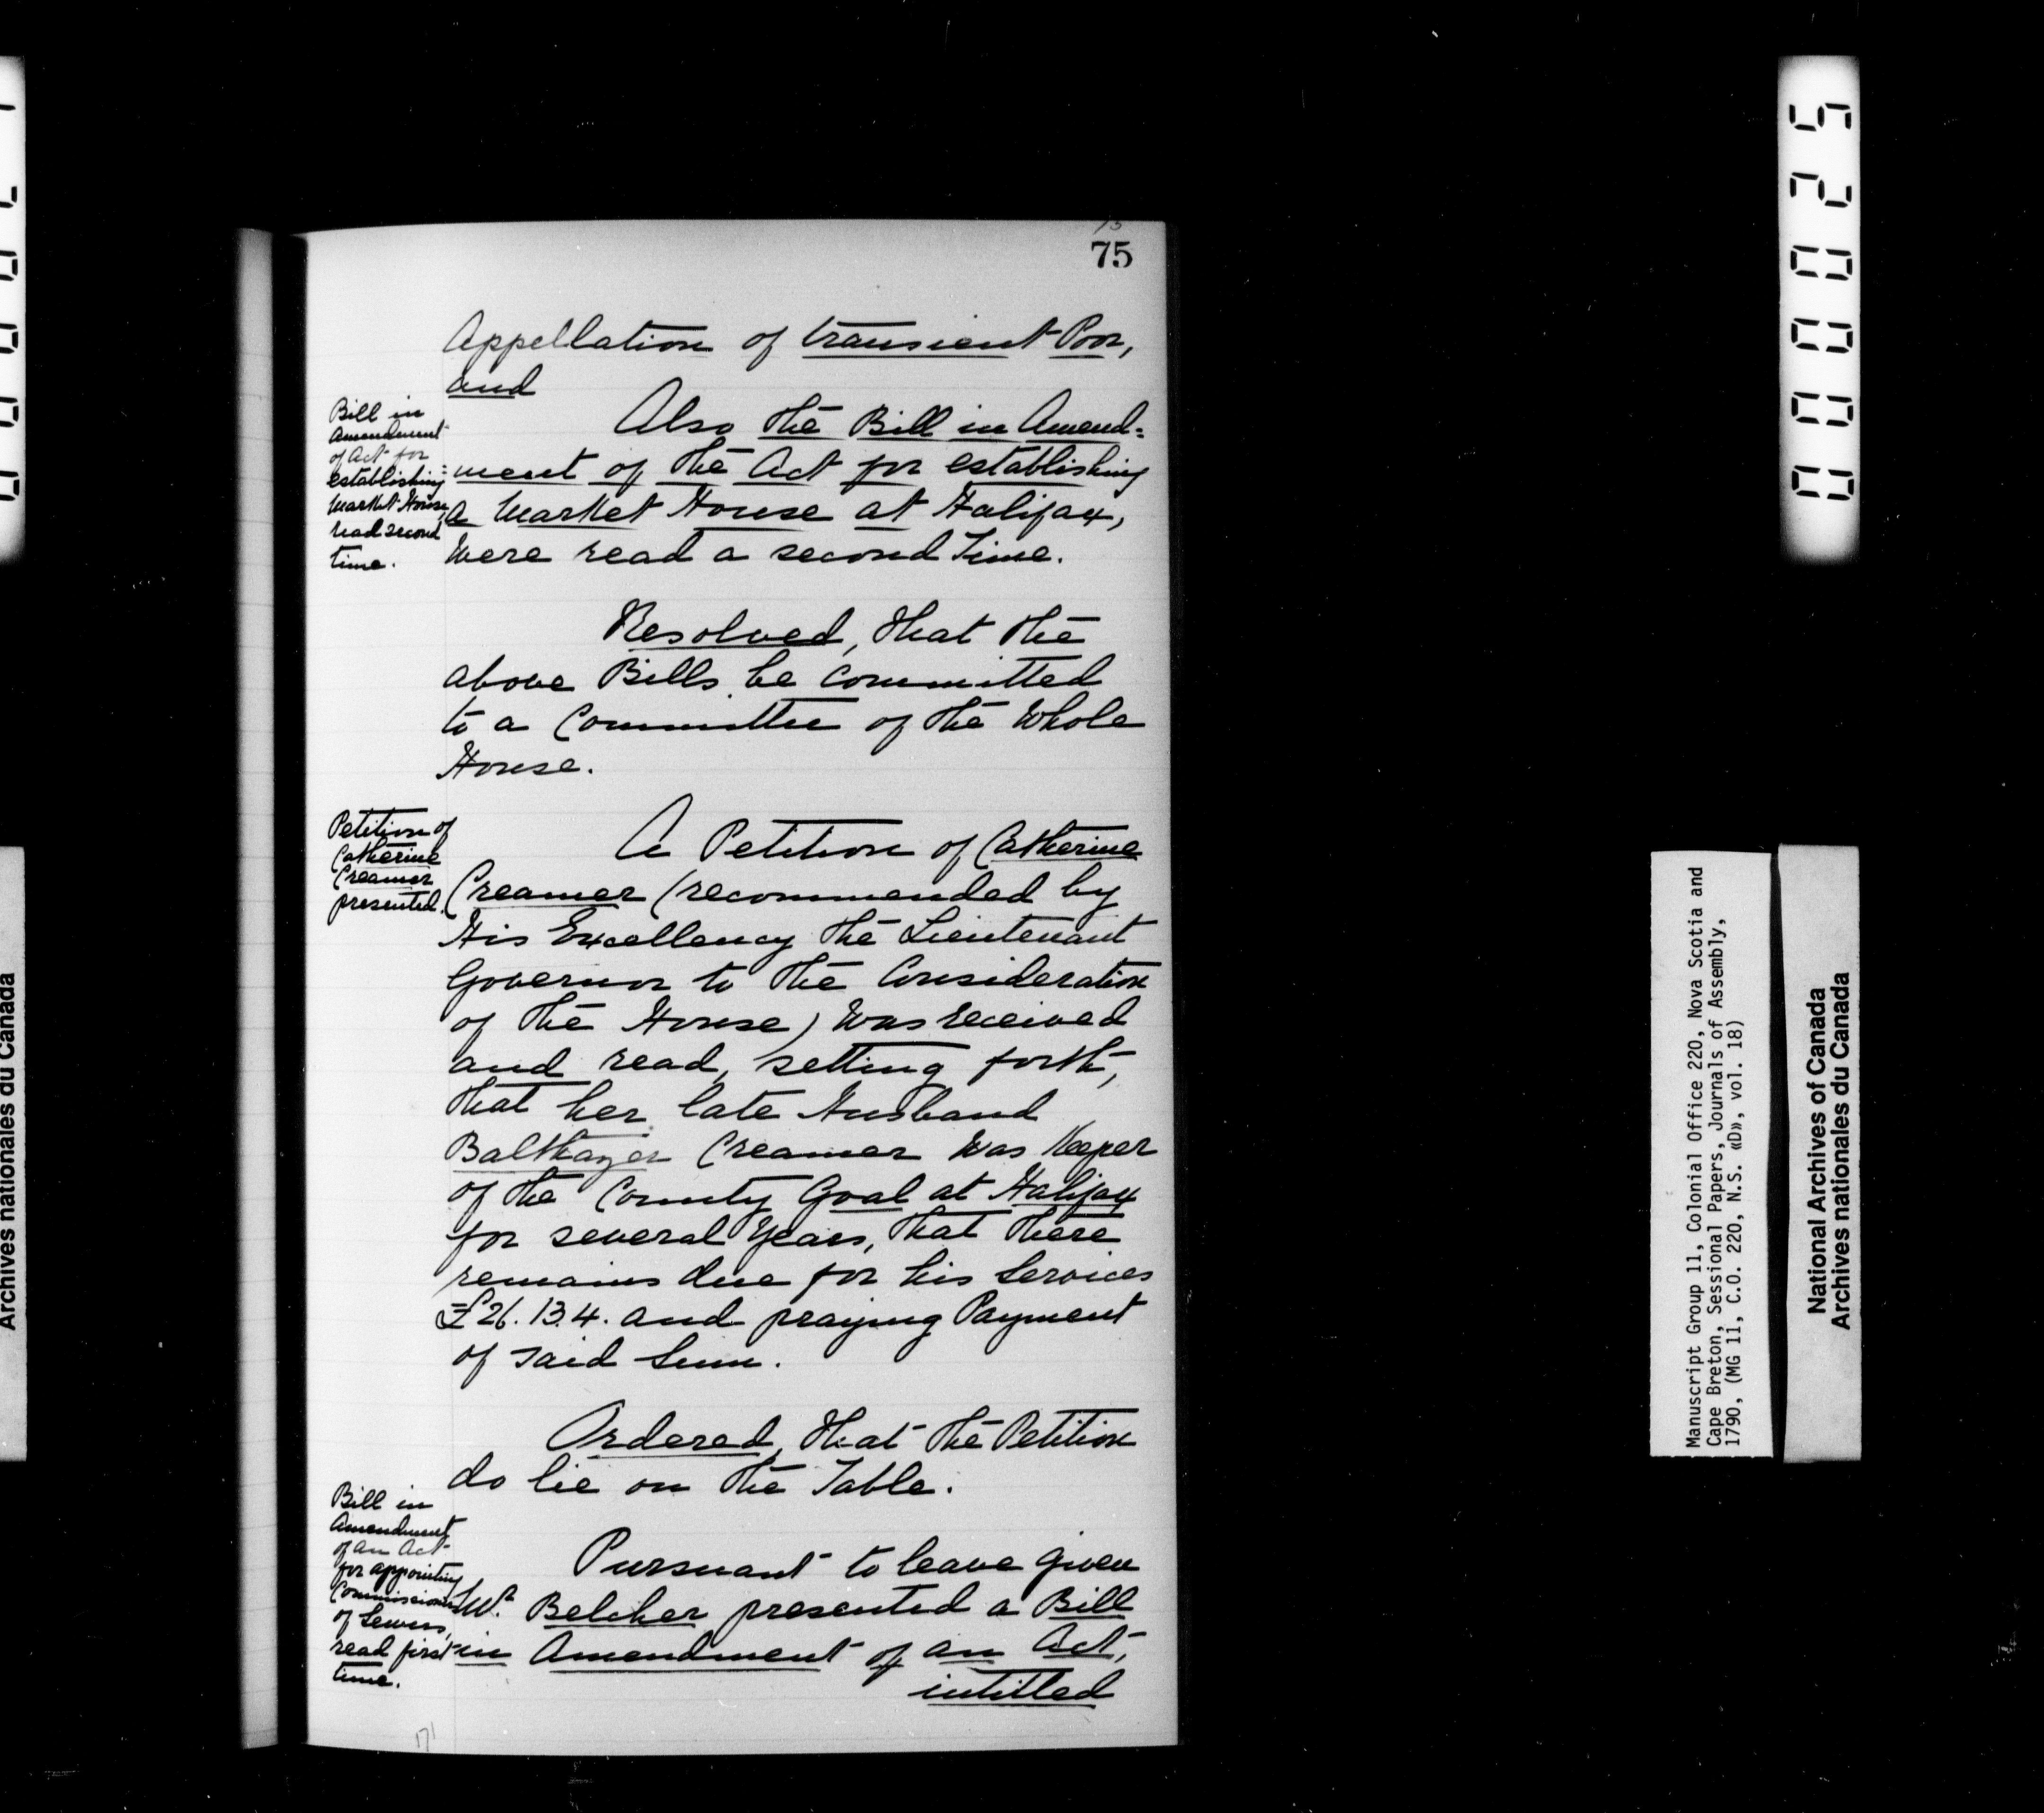 75
Appellation of transient Poor,
and
Bill in
Amendment
of Act for
establishing
Market House,
read second
time.
Also the Bill in Amend=
=ment of the Act for establishing
a Market House at Halifax,
Were read a second Time.
Resolved, that the
above Bills be committed
to a Committee of the Whole
House.
Petition of
Catherine
Creamer
presented.
A Petition of Catherine
Creamer (recommended by
His Excellency the Lieutenant
Governor to the Consideration
of the House) Was received
and read, setting forth,
that her late Husband
Balthazer Creamer Was Keeper
of the County Goal at Halifax
for several Years, that there
remains due for his Services
£26.13.4. and praying Payment
of said Sum.
Ordered, that the Petition
do lie on the Table.
Bill in
Amendment
of an Act
for appointing
Commissioners
of Sewers,
read first
time.
Pursuant to leave given
Mr. Belcher presented a Bill
in Amendment of an Act,
intitled
171
000025
Manuscript Group 11, Colonial Office 220, Nova Scotia and
Cape Breton, Sessional Papers, Journals of Assembly,
1790, (MG 11, C.O. 220, N.S. «D», vol. 18)
National Archives of Canada
Archives nationales du Canada
Archives nationales du Canada